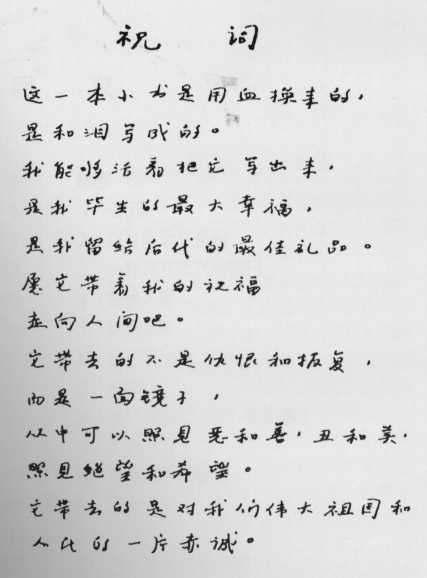 祝 词
这一本小书是用血换来的，
是和泪写成的。
我能够活着把它写出来，
是我毕生的最大幸福，
是我留给后代的最佳礼品。
愿它带着我的祝福
走向人间吧。
它带去的不是仇恨和报复，
而是一面镜子，
从中可以照见恶和善，丑和美，
照见绝望和希望。
它带去的是对我们伟大祖国和
人民的一片赤诚。